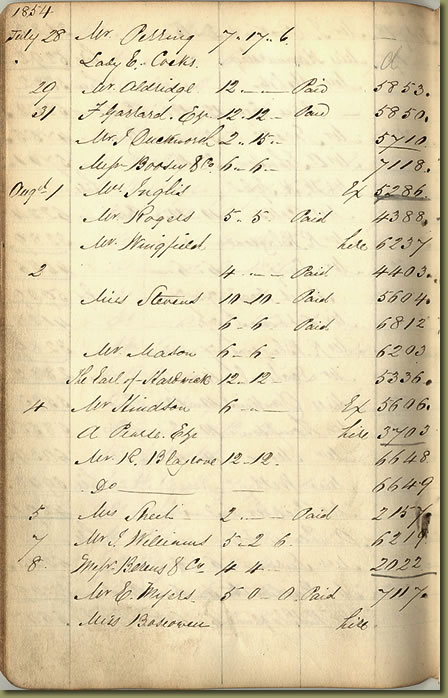 1854
July 28 Mr. Perring 7. 17. 6.
Lady E. Cocks. d
29 Mr. Aldridge 12 - - Paid 5853.
31 F Garrard. Esq 12. 12 - Paid 5850.
Mr J Duckworth 2. 15 - 5710
Messrs Boosey & Co 6 - 6 - 7118.
Augt 1 Mrs Inglis Ex 5286.
Mr Rogers 5 - 5 Paid 4388.
Mr. Wingfield hire 6237
2 4 - - Paid 4403.
Miss Stevens 10 - 10 - Paid 5604.
6 - 6 Paid 6812
Mr. Mason 6 - 6 - 6203
The Earl of Hardwick 12 - 12 - 5336.
4 Mr Hindson 6 - - Ex 5606.
A Pearse. Esqe hire 3703
Mr. R. Blagrove 12 - 12. 6648
Do 6649
5 Mrs 2 - - Paid 2157
7 Mr J. Williams 5 - 2 6. 6219
8 Messrs & Co 4 4 - 2022
Mr E. Myers 5 0 - 0 Paid 7117.
Miss Boscowen hire